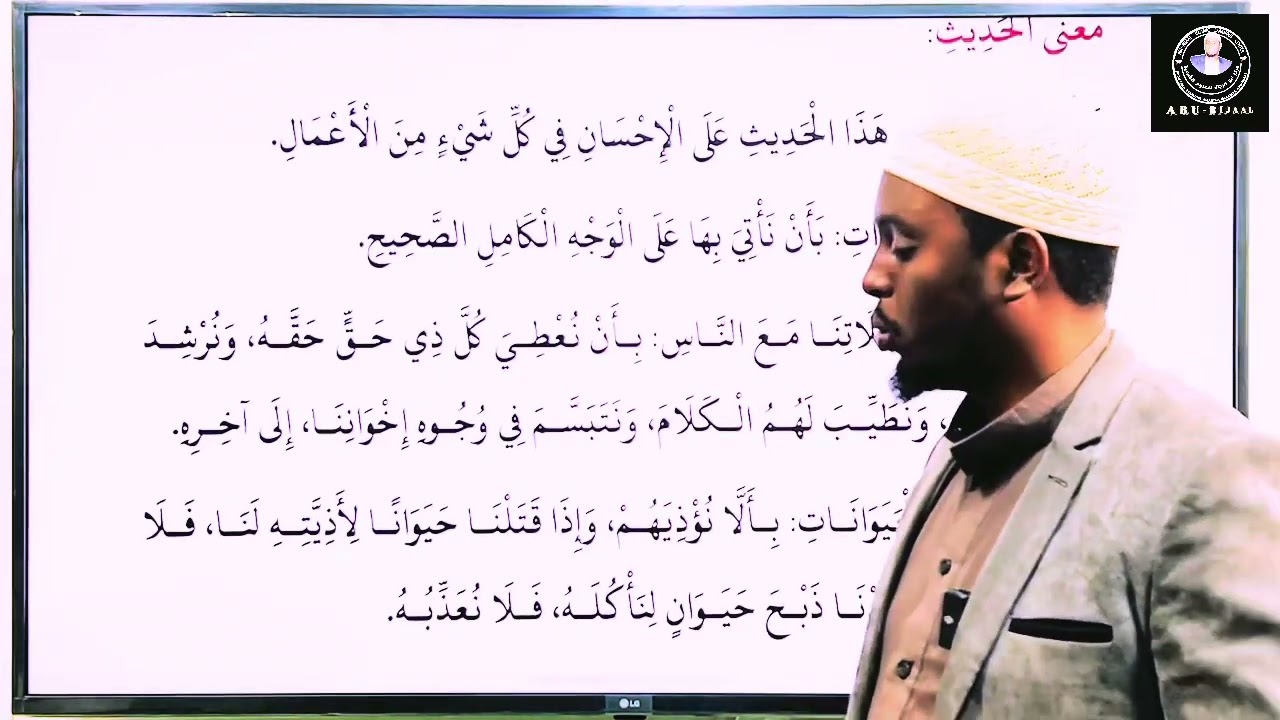 معنى الحَدِيثِ:
هَذَا الْحَدِيثِ عَلَى الْإِحْسَانِ فِي كُلِّ شَيْءٍ مِنَ الْأَعْمَالِ.
بَأَنْ نَأْتِيَ بِهَا عَلَى الْوَجْهِ الْكَامِلِ الصَّحِيحِ.
مَعَ النَّاسِ: بِأَنْ نُعْطِيَ كُلَّ ذِي حَقٍّ حَقَّهُ، وَنُرْشِدَ
وَنُطَيِّبَ لَهُمُ الْكَلَامَ، وَنَتَبَسَّمَ فِي وُجُوهِ إِخْوَانِنَا، إِلَى آخِرِهِ.
بِأَلَّا نُؤْذِيَهُمْ، وَإِذَا قَتَلْنَا حَيَوَانًا لِأَذِيَّتِهِ لَنَا، فَلَا
ذَبْحَ حَيَوَانٍ لِنَأْكُلَهُ، فَلَا نُعَذِّبُهُ.
ABU-BIJAAL
LG